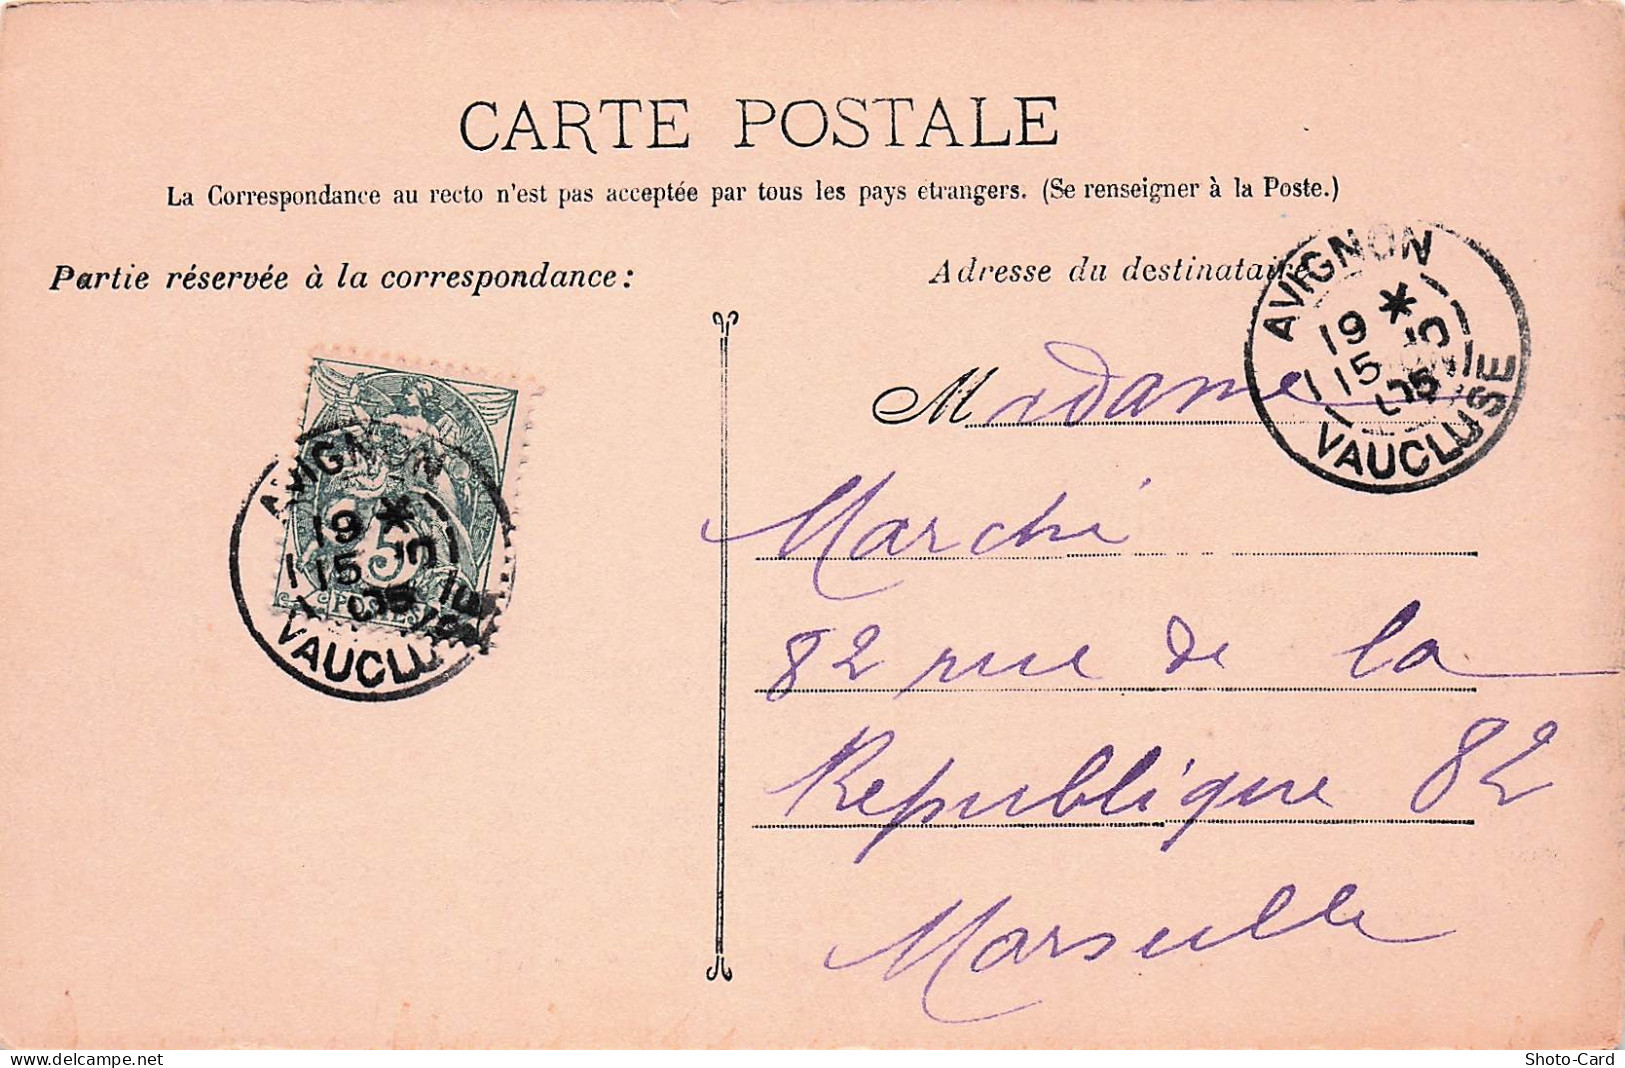 CARTE POSTALE
La Correspondance au recto n'est pas acceptée par tous les pays etrangers. (Se renseigner à la Poste.)
Partie réservée à la correspondance:
Adresse du destinataire
AVIGNON
19 *
15
05
VAUCLUSE
Madame
Marchi
82 rue de la
Republique 82
Marseille
AVIGNON
19 *
15
5
05
VAUCLUSE
delcampe.net
Shoto-Card